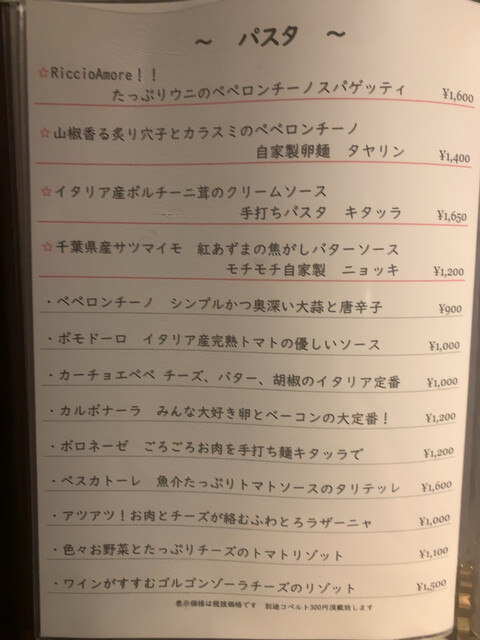 ～ パスタ ～
☆RiccioAmore！！
たっぷりウニのペペロンチーノスパゲッティ ¥1,600
☆山椒香る炙り穴子とカラスミのペペロンチーノ
自家製卵麺 タヤリン ¥1,400
☆イタリア産ポルチーニ茸のクリームソース
手打ちパスタ キタッラ ¥1,650
☆千葉県産サツマイモ 紅あずまの焦がしバターソース
モチモチ自家製 ニョッキ ¥1,200
・ペペロンチーノ シンプルかつ奥深い大蒜と唐辛子 ¥900
・ポモドーロ イタリア産完熟トマトの優しいソース ¥1,000
・カーチョエペペ チーズ、バター、胡椒のイタリア定番 ¥1,000
・カルボナーラ みんな大好き卵とベーコンの大定番！ ¥1,200
・ボロネーゼ ごろごろお肉を手打ち麺キタッラで ¥1,200
・ペスカトーレ 魚介たっぷりトマトソースのタリテッレ ¥1,600
・アツアツ！お肉とチーズが絡むふわとろラザーニャ ¥1,000
・色々お野菜とたっぷりチーズのトマトリゾット ¥1,100
・ワインがすすむゴルゴンゾーラチーズのリゾット ¥1,500
表示価格は税抜価格です 別途コペルト300円頂戴致します